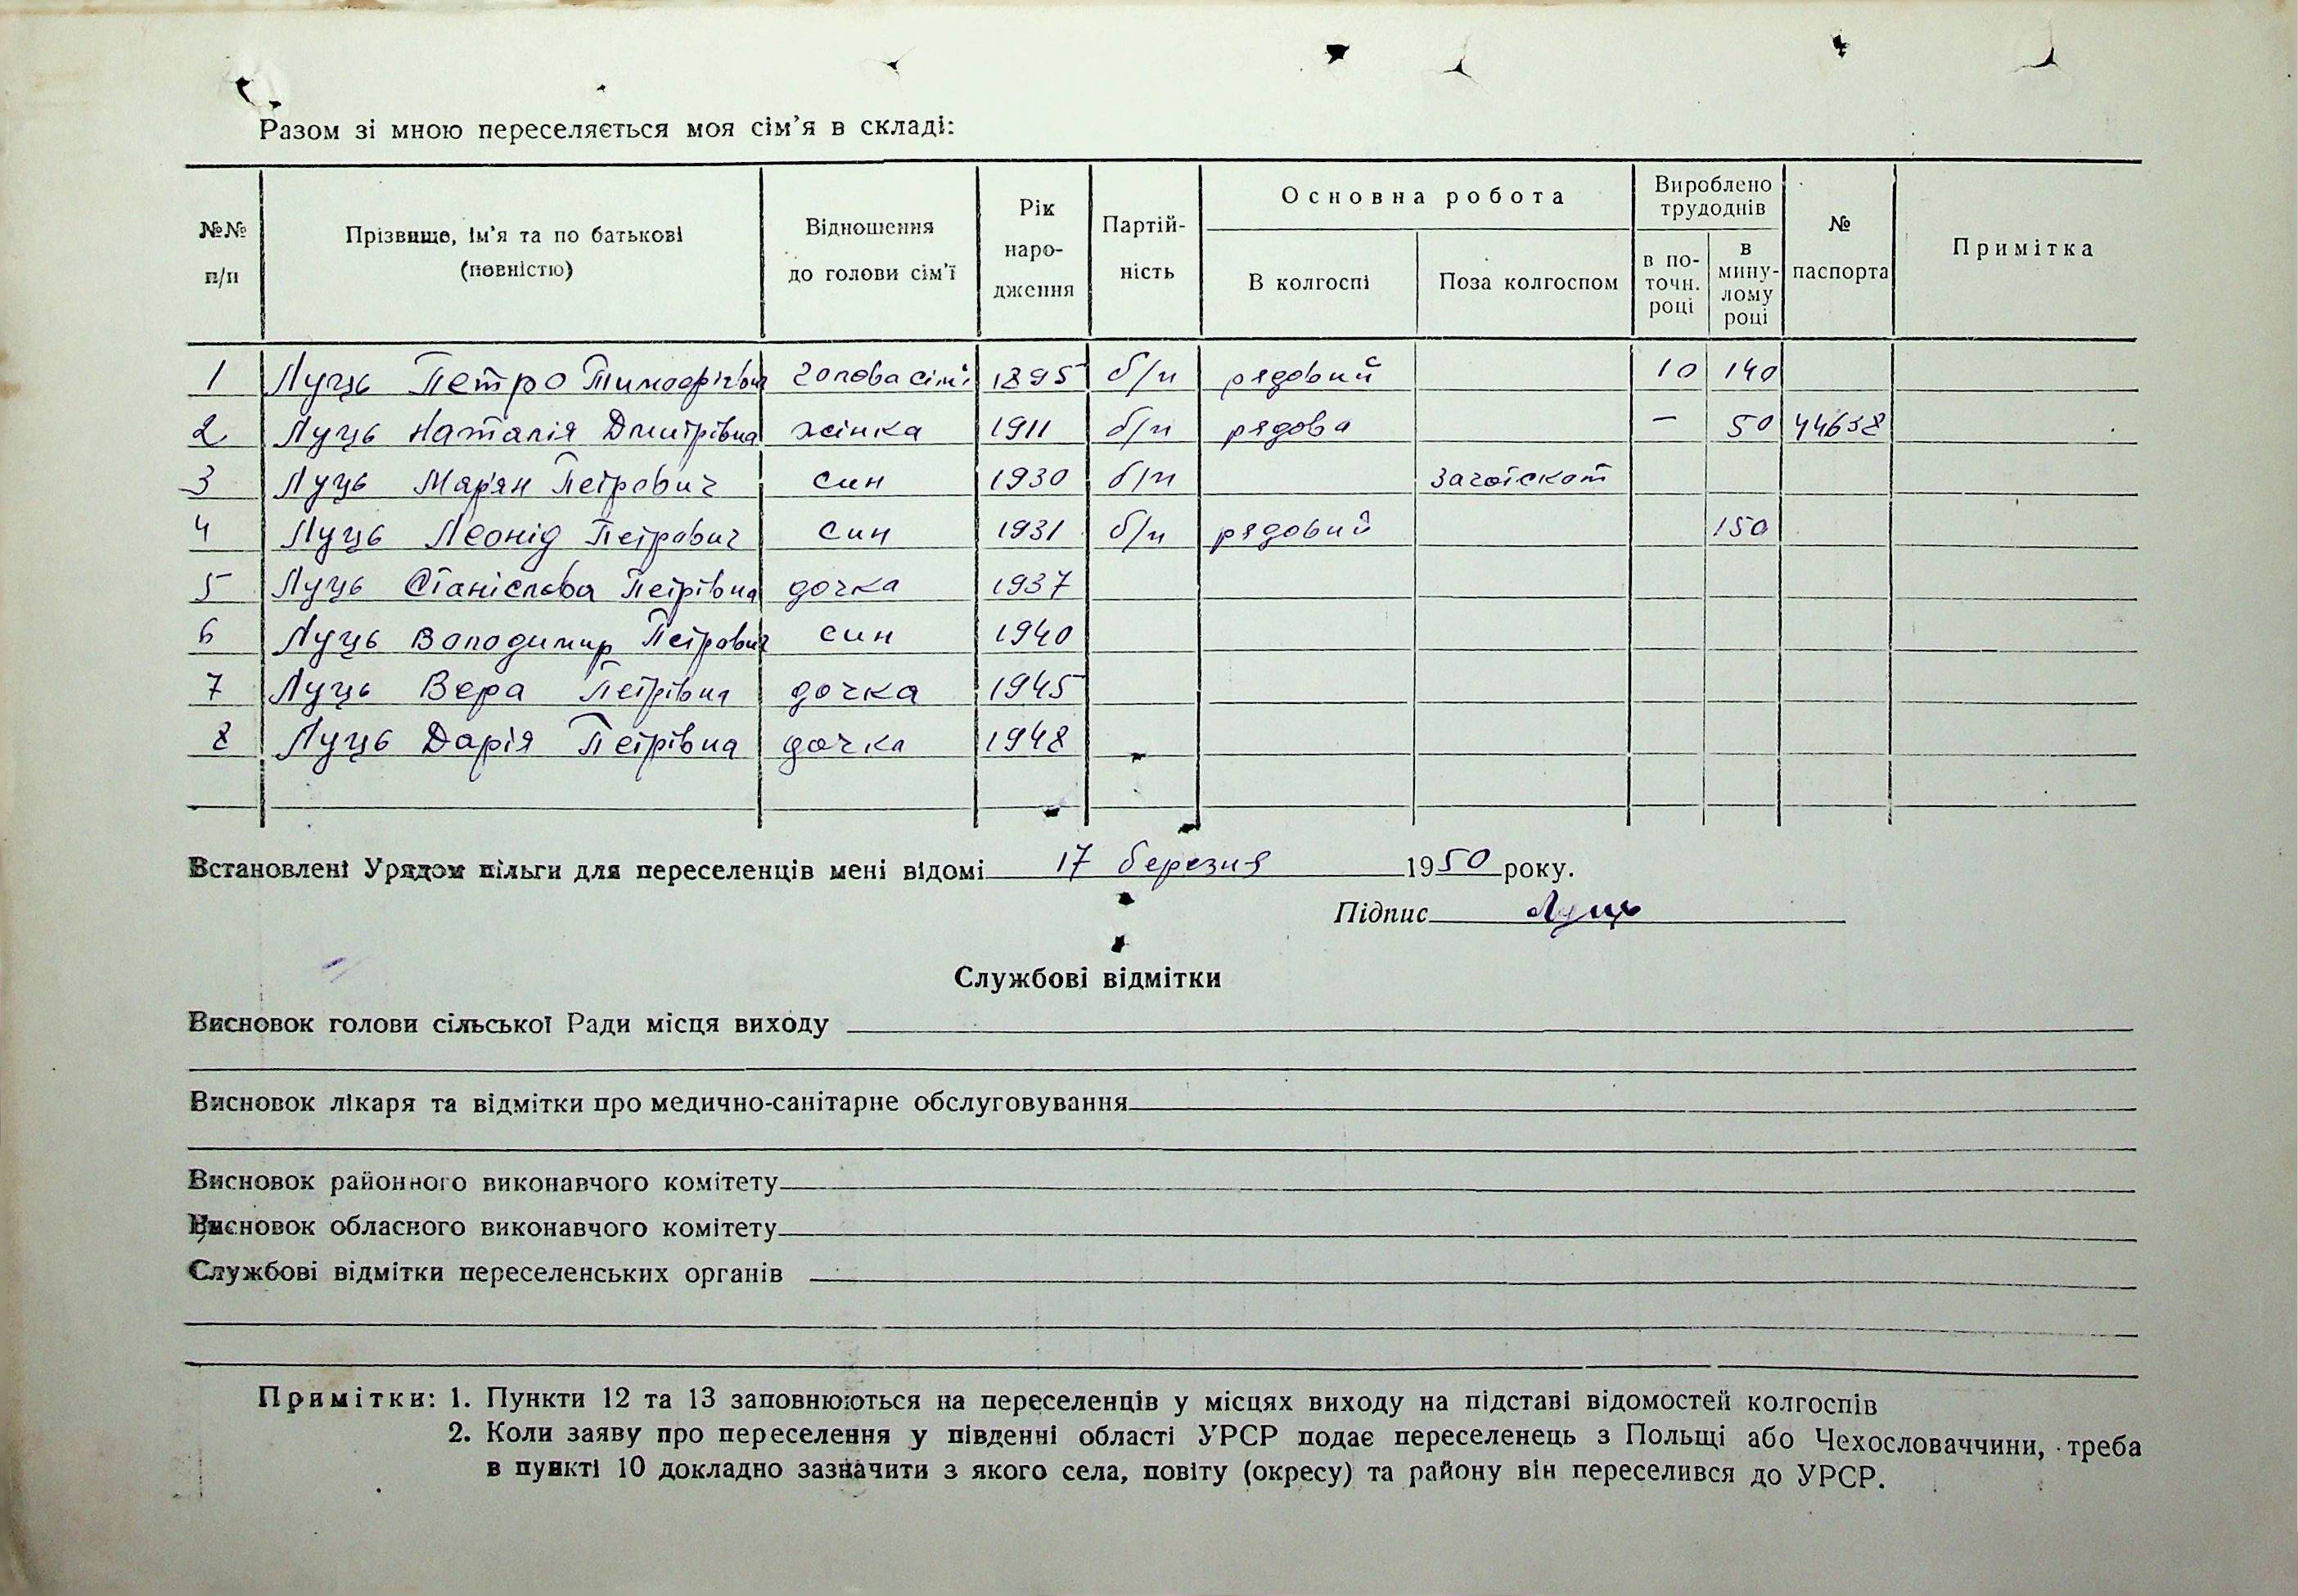 Разом зі мною переселяється моя сім'я в складі:
№№ п/п | Прізвище, ім'я та по батькові (повністю) | Відношення до голови сім'ї | Рік народження | Партій-ність | Основна робота | Вироблено трудоднів | № паспорта | Примітка
В колгоспі | Поза колгоспом | в по-точн. році | в мину-лому році
1 Луць Петро Тимофійович голова сім'ї 1895 б/п рядовий 10 140
2 Луць Наталія Дмитрівна жінка 1911 б/п рядова — 50 44638
3 Луць Мар'ян Петрович син 1930 б/п Заготскот
4 Луць Леонід Петрович син 1931 б/п рядовий 150
5 Луць Станіслава Петрівна дочка 1937
6 Луць Володимир Петрович син 1940
7 Луць Вера Петрівна дочка 1945
8 Луць Дарія Петрівна дочка 1948
Встановлені Урядом пільги для переселенців мені відомі 17 березня 1950 року.
Підпис Луць
Службові відмітки
Висновок голови сільської Ради місця виходу
Висновок лікаря та відмітки про медично-санітарне обслуговування
Висновок районного виконавчого комітету
Висновок обласного виконавчого комітету
Службові відмітки переселенських органів
Примітки: 1. Пункти 12 та 13 заповнюються на переселенців у місцях виходу на підставі відомостей колгоспів
2. Коли заяву про переселення у південні області УРСР подає переселенець з Польщі або Чехословаччини, треба
в пункті 10 докладно зазначити з якого села, повіту (окресу) та району він переселився до УРСР.